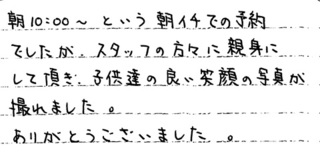 朝10:00～という朝イチでの予約
でしたが、スタッフの方々に親身に
して頂き、子供達の良い笑顔の写真が
撮れました。
ありがとうございました。